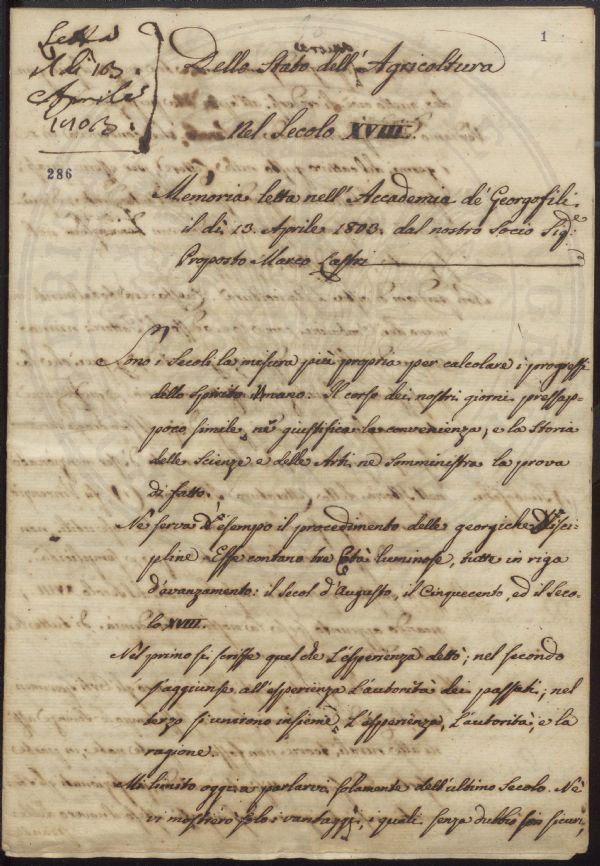 Letta
il dì 13
Aprile
1803.
286
1
Dello Stato dell'Agricoltura
Nel Secolo XVIII.
Memoria letta nell'Accademia de' Georgofili
il dì 13. Aprile 1803. dal nostro Socio Sigr.
Proposto Marco Lastri
Sono i Secoli la misura più propria per calcolare i progressi
dello Spirito Umano. Il corso dei nostri giorni pressap-
poco simile, ne giustifica la convenienza, e la Storia
delle Scienze e delle Arti, ne somministra la prova
di fatto.
Ne serva d'esempo il procedimento delle georgiche Disci-
pline. Esse contano tre Età luminose, tutte in riga
d'avanzamento: il Secol d'Augusto, il Cinquecento, ed il Seco-
lo XVIII.
Nel primo si scrisse quel che l'esperienza dettò; nel secondo
s'aggiunse all'esperienza l'autorità dei passati; nel
terzo si unirono insieme, l'esperienza, l'autorità, e la
ragione.
Mi limito oggi a parlarvi solamente dell'ultimo Secolo. Nè
vi mostrerò solo i vantaggj, i quali senza dubbio son sicuri,